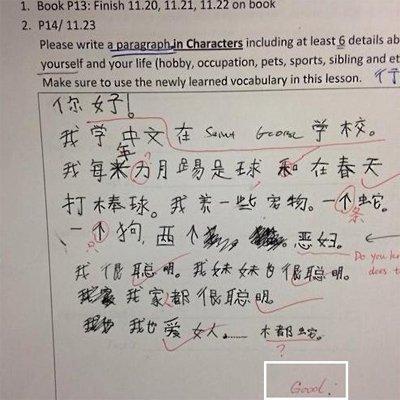 1. Book P13: Finish 11.20, 11.21, 11.22 on book
2. P14/ 11.23
Please write a paragraph in Characters including at least 6 details ab
yourself and your life (hobby, occupation, pets, sports, sibling and et
Make sure to use the newly learned vocabulary in this lesson.
你好！
我学中文在 Saint George 学校。
我每年 月踢足球和在春天
打棒球。我养一些宠物。一个蛇
条
一个狗，两个 恶妇。
Do you kn
does t
我很聪明。我妹妹也很聪明。
我家都很聪明。
我也爱女人…… 木都蛇。
?
Good!